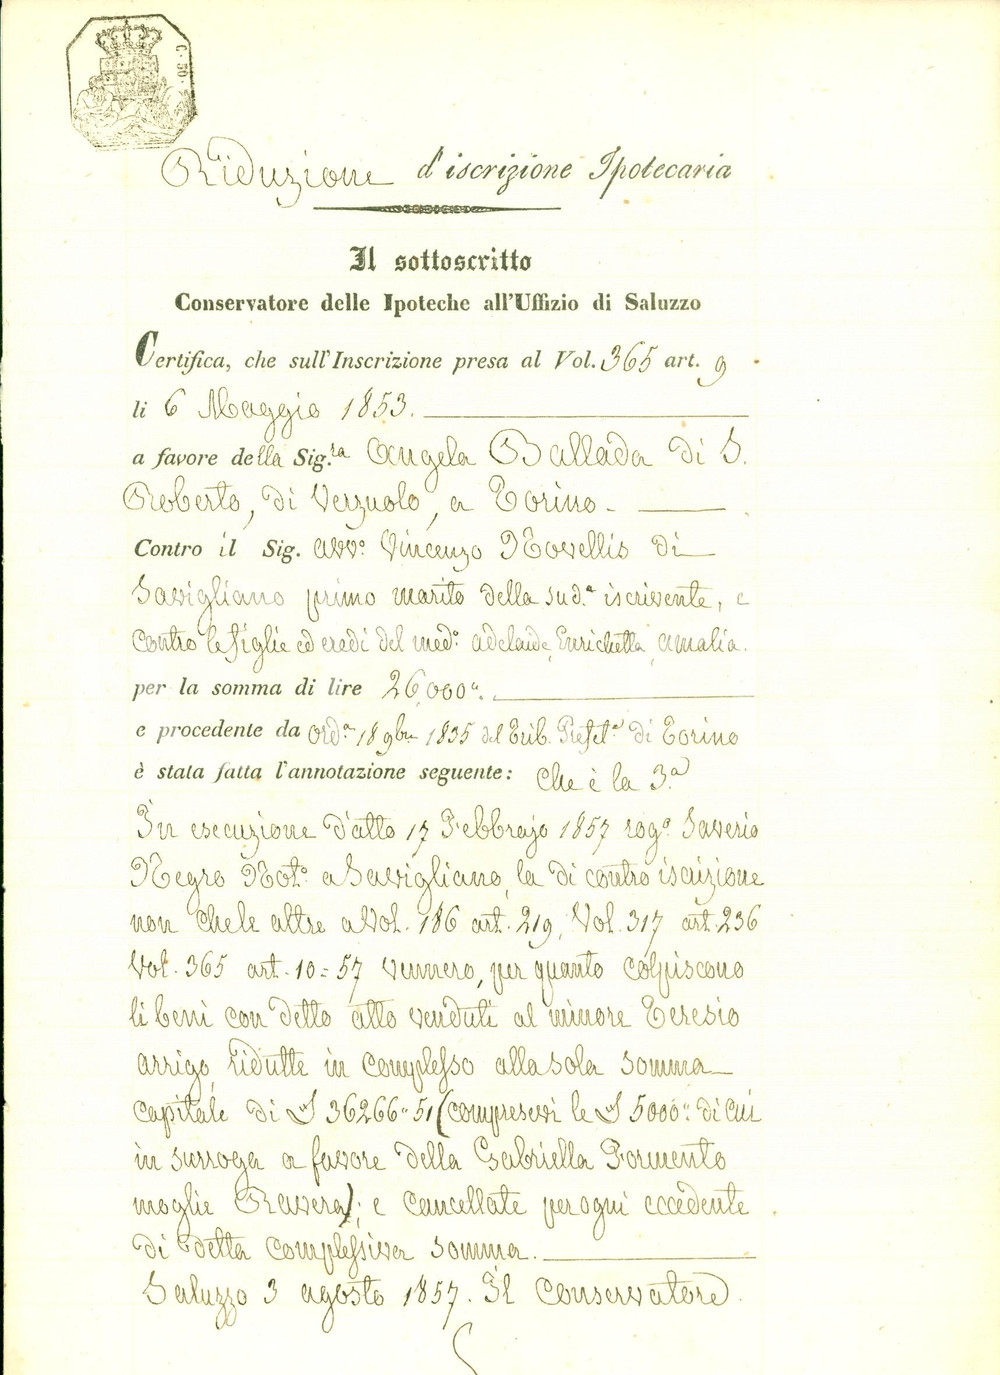 C. 50.
Riduzione d'iscrizione Ipotecaria
Il sottoscritto
Conservatore delle Ipoteche all'Uffizio di Saluzzo
Certifica, che sull'Inscrizione presa al Vol. 365 art. 9
li 6 Maggio 1853.
a favore della Sig.ra Angela Ballada di S.
Roberto, di Verzuolo, a Torino.
Contro il Sig. avv.o Vincenzo Novellis di
Savigliano primo marito della sud.a iscrivente, e
contro le figlie ed eredi del med.o Adelaide, Enrichetta, Amalia.
per la somma di lire 26,000".
e procedente da ord.a 18 9bre 1835 del Trib. Prefet.o di Torino
è stata fatta l'annotazione seguente: Che è la 3.a
In esecuzione d'atto 17 Febbrajo 1857 rog.o Saverio
Negro Not.o a Savigliano, la di contro iscrizione
non che le altre a Vol. 186 art. 219, Vol. 317 art. 236
Vol. 365 art. 10 = 57 vennero, per quanto colpiscono
li beni con detto atto venduti al minore Teresio
Arrigo, ridutte in complesso alla sola somma
capitale di £ 36266" 51 (compresevi le £ 5000" di cui
in surroga a favore della Gabriella Formento
moglie Ravera); e cancellate per ogni eccedente
di detta complessiva somma.
Saluzzo 3 agosto 1857. Il Conservatore